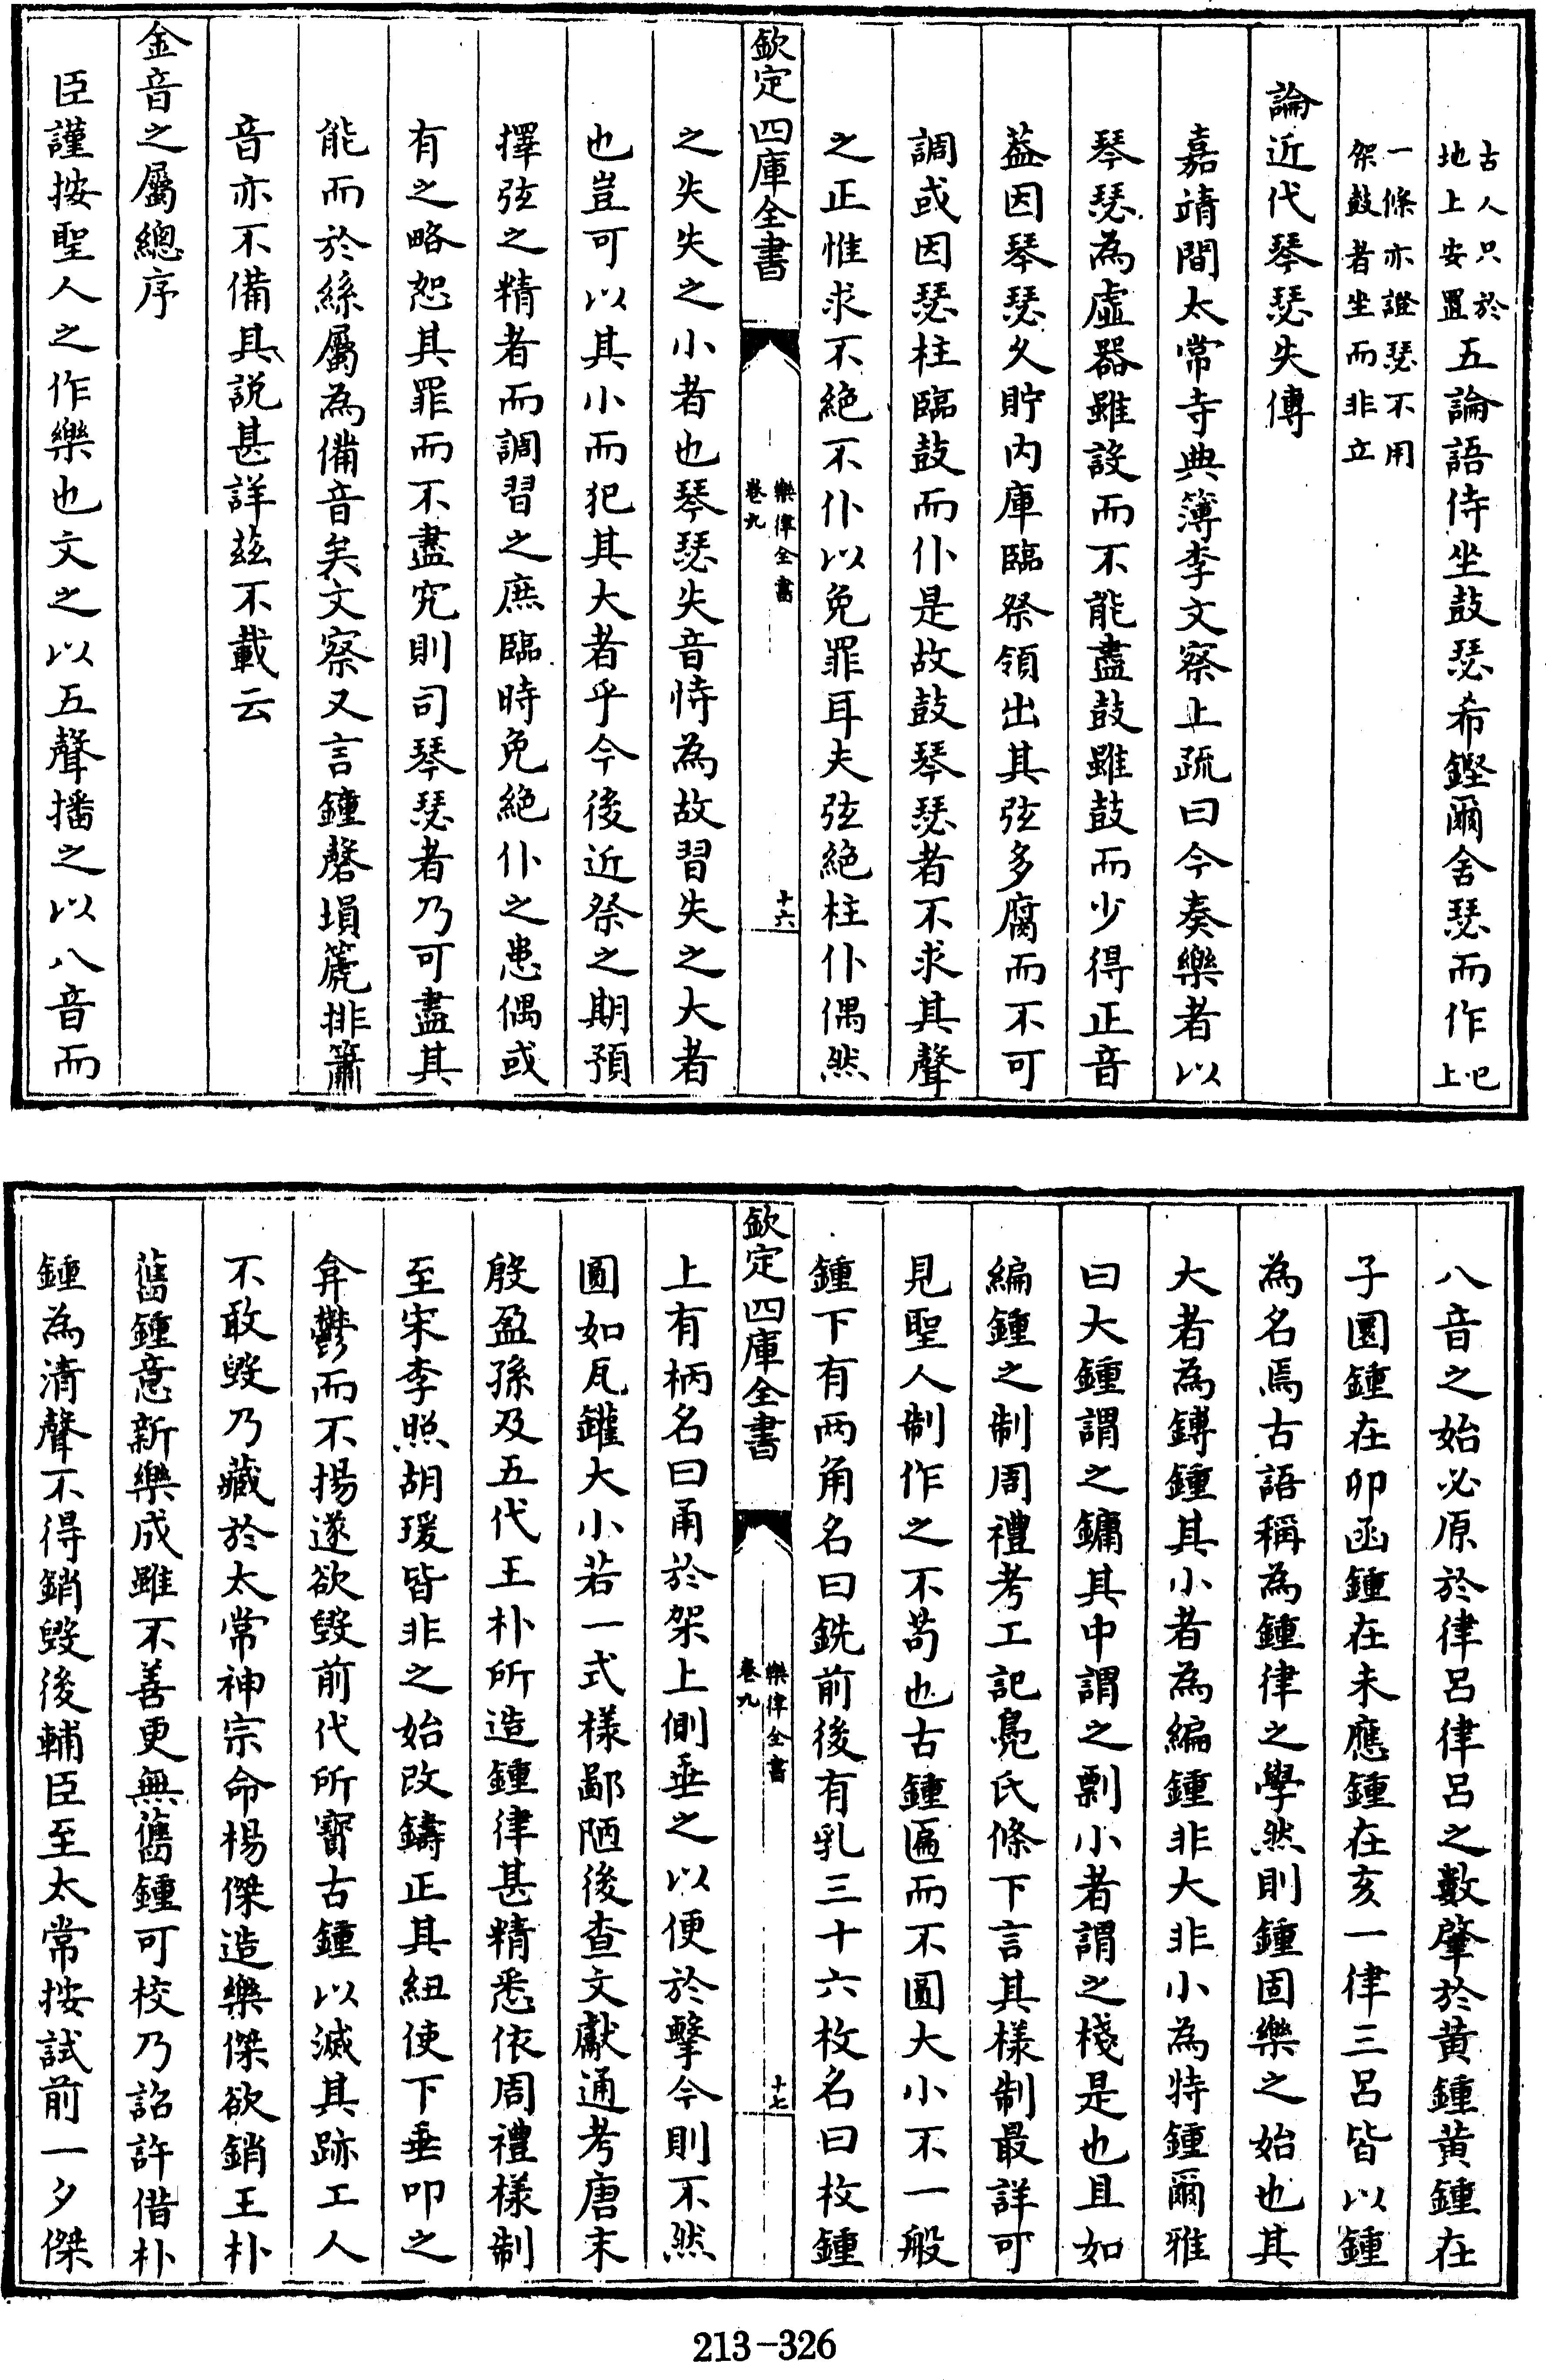 古人只於地上安置五論語侍坐鼓瑟希鏗爾舍瑟而作巳上
一條亦證瑟不用架鼓者坐而非立
論近代琴瑟失傳
嘉靖間太常寺典簿李文察上疏曰今奏樂者以
琴瑟為虛器雖設而不能盡鼓雖鼓而少得正音
葢因琴瑟久貯内庫臨祭領出其弦多腐而不可
調或因瑟柱臨鼓而仆是故鼓琴瑟者不求其聲
之正惟求不絶不仆以免罪耳夫弦絶柱仆偶然
欽定四庫全書
樂律全書
卷九
十六
之失失之小者也琴瑟失音恃為故習失之大者
也豈可以其小而犯其大者乎今後近祭之期預
擇弦之精者而調習之庶臨時免絶仆之患偶或
有之略恕其罪而不盡究則司琴瑟者乃可盡其
能而於絲屬為備音矣文察又言鐘磬塤篪排簫
音亦不備其説甚詳兹不載云
金音之屬總序
臣謹按聖人之作樂也文之以五聲播之以八音而
八音之始必原於律呂律呂之數肇於黃鍾黃鍾在
子圜鍾在卯函鍾在未應鍾在亥一律三呂皆以鍾
為名焉古語稱為鍾律之學然則鍾固樂之始也其
大者為鎛鍾其小者為編鍾非大非小為特鍾爾雅
曰大鍾謂之鏞其中謂之剽小者謂之棧是也且如
編鍾之制周禮考工記鳧氏條下言其樣制最詳可
見聖人制作之不苟也古鍾匾而不圓大小不一般
鍾下有两角名曰銑前後有乳三十六枚名曰枚鍾
欽定四庫全書
樂律全書
卷九
十七
上有柄名曰甬於架上側垂之以便於擊今則不然
圓如瓦鑵大小若一式樣鄙陋後查文獻通考唐末
殷盈孫及五代王朴所造鍾律甚精悉依周禮樣制
至宋李照胡瑗皆非之始改鑄正其紐使下垂叩之
弇鬱而不揚遂欲毀前代所寳古鍾以滅其跡工人
不敢毀乃藏於太常神宗命楊傑造樂傑欲銷王朴
舊鍾意新樂成雖不善更無舊鍾可校乃詔許借朴
鍾為清聲不得銷毀後輔臣至太常按試前一夕傑
213-326